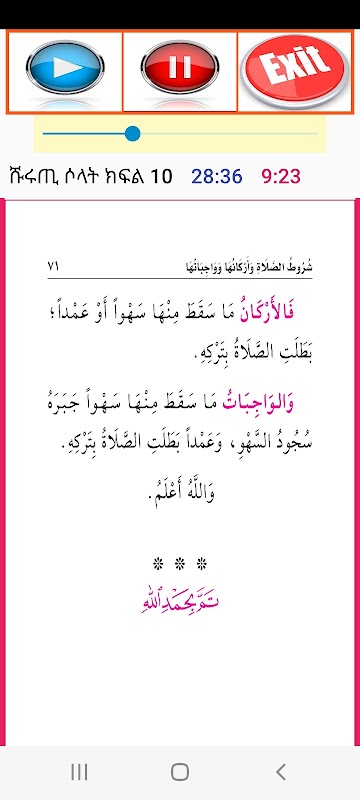 Exit
ሹሩጢ ሶላት ክፍል 10 28:36 9:23
شُرُوطُ الصَّلَاةِ وَأَرْكَانُهَا وَوَاجِبَاتُهَا ٧١
فَالأَرْكَانُ مَا سَقَطَ مِنْهَا سَهْواً أَوْ عَمْداً؛
بَطَلَتِ الصَّلَاةُ بِتَرْكِهِ.
وَالوَاجِبَاتُ مَا سَقَطَ مِنْهَا سَهْواً جَبَرَهُ
سُجُودُ السَّهْوِ، وَعَمْداً بَطَلَتِ الصَّلَاةُ بِتَرْكِهِ.
وَاللَّهُ أَعْلَمُ.
تَمَّ بِحَمْدِ اللهِ